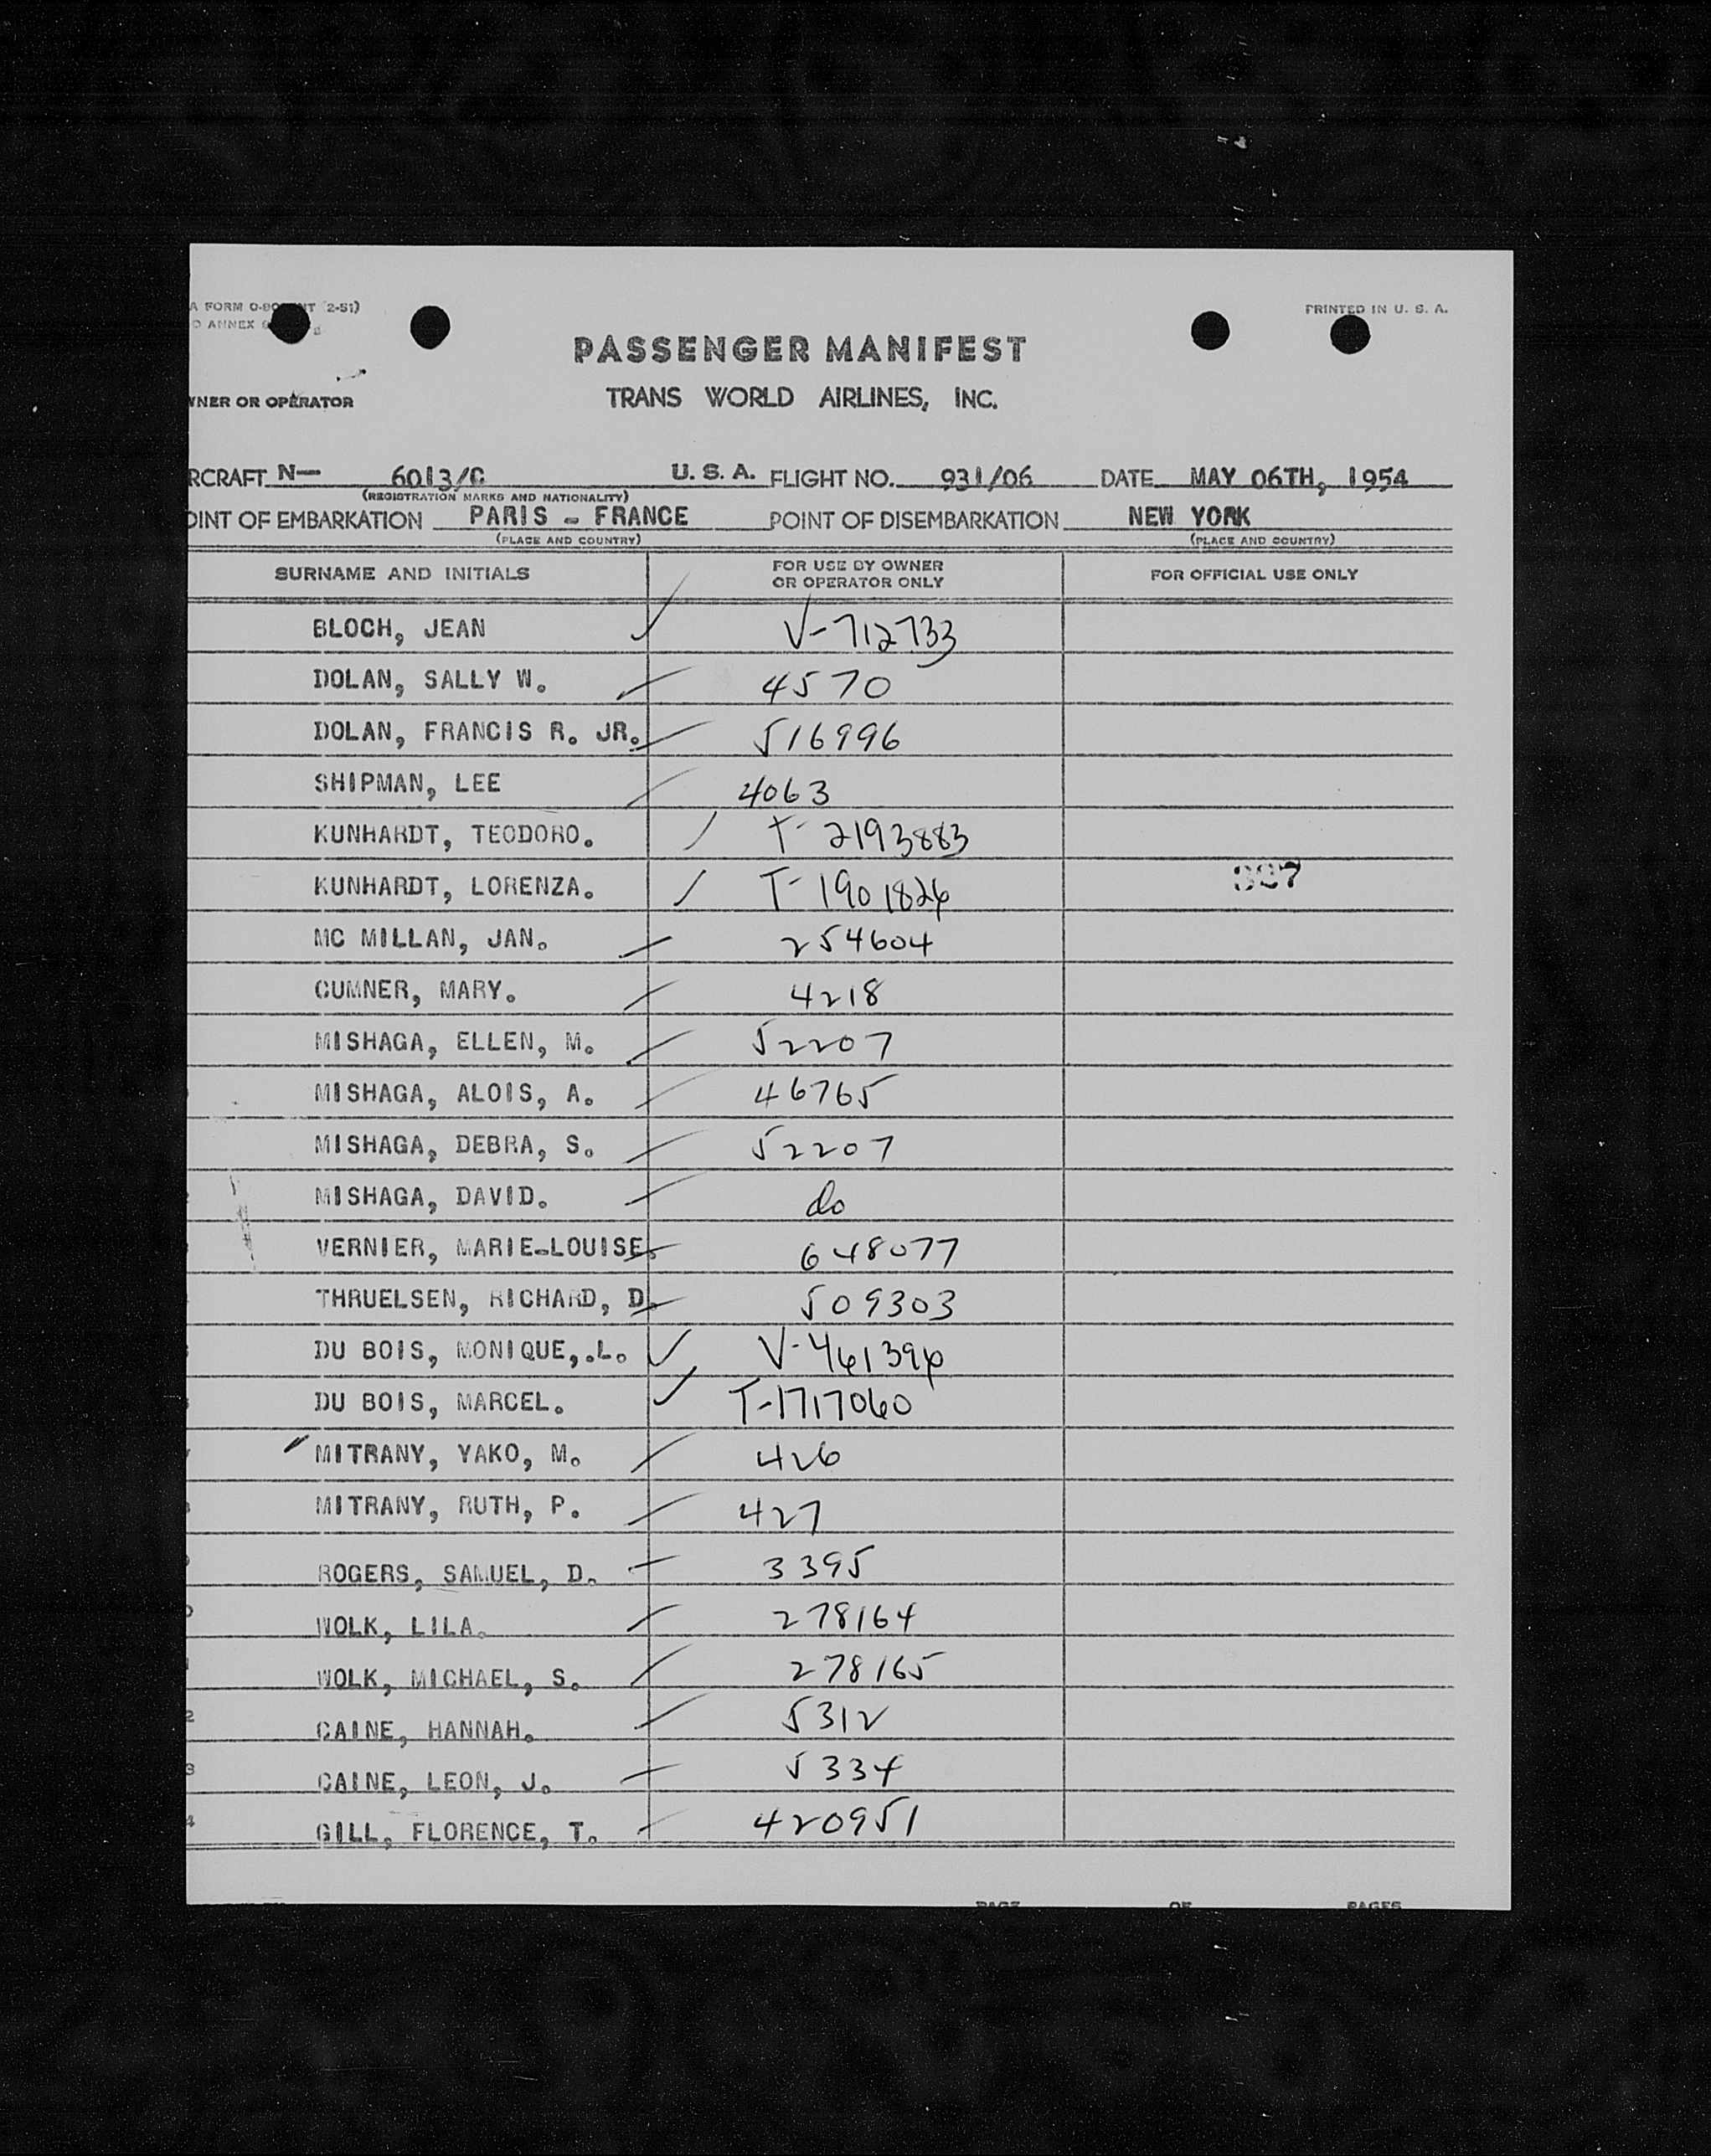 A FORM O-90 NT (2-51)
PRINTED IN U. S. A.
O ANNEX
PASSENGER MANIFEST
WNER OR OPERATOR
TRANS WORLD AIRLINES, INC.
RCRAFT N— 6013/C U. S. A. FLIGHT NO. 931/06 DATE MAY 06TH, 1954
(REGISTRATION MARKS AND NATIONALITY)
OINT OF EMBARKATION PARIS - FRANCE POINT OF DISEMBARKATION NEW YORK
(PLACE AND COUNTRY) (PLACE AND COUNTRY)
SURNAME AND INITIALS FOR USE BY OWNER OR OPERATOR ONLY FOR OFFICIAL USE ONLY
BLOCH, JEAN V-712733
DOLAN, SALLY W. 4570
DOLAN, FRANCIS R. JR. 516996
SHIPMAN, LEE 4063
KUNHARDT, TEODORO. T-2193883
KUNHARDT, LORENZA. T-1901826
MC MILLAN, JAN. 254604
CUMNER, MARY. 4218
MISHAGA, ELLEN, M. 52207
MISHAGA, ALOIS, A. 46765
MISHAGA, DEBRA, S. 52207
MISHAGA, DAVID. do
VERNIER, MARIE-LOUISE. 648077
THRUELSEN, RICHARD, D. 509303
DU BOIS, MONIQUE,.L. V-461396
DU BOIS, MARCEL. T-1717060
MITRANY, YAKO, M. 426
MITRANY, RUTH, P. 427
ROGERS, SAMUEL, D. 3395
WOLK, LILA. 278164
WOLK, MICHAEL, S. 278165
CAINE, HANNAH. 5312
CAINE, LEON, J. 5334
GILL, FLORENCE, T. 420951
PAGE OF PAGES